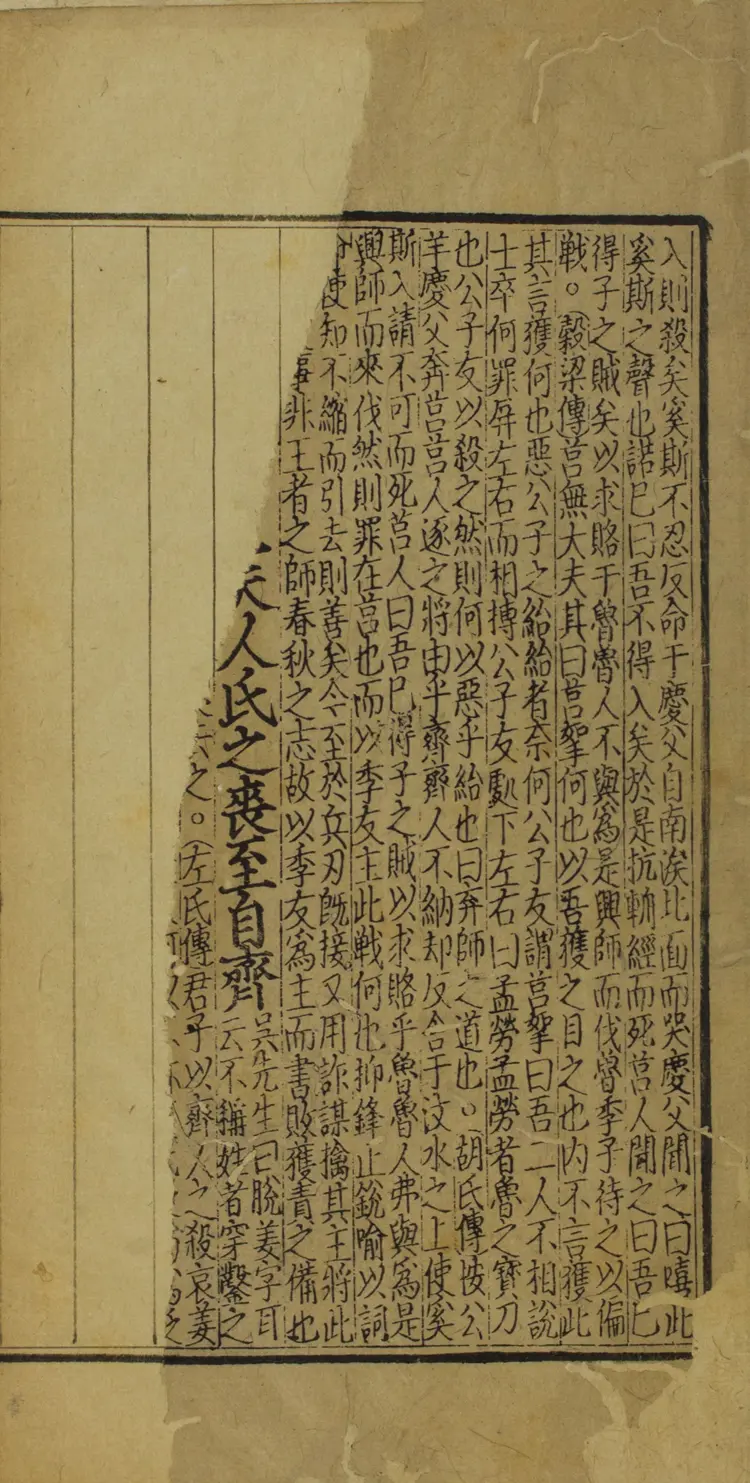 入則殺矣奚斯不忍反命于慶父自南涘北面而哭慶父聞之曰嘻此
奚斯之聲也諾已曰吾不得入矣於是抗輈經而死莒人聞之曰吾已
得子之賊矣以求賂于魯魯人不與爲是興師而伐魯季子待之以偏
戦。穀梁傳莒無大夫其曰莒挐何也以吾獲之目之也内不言獲此
其言獲何也惡公子之紿紿者奈何公子友謂莒挐曰吾二人不相說
士卒何罪屏左右而相搏公子友處下左右曰孟勞孟勞者魯之寶刀
也公子友以殺之然則何以惡乎紿也曰弃師之道也。胡氏傳按公
羊慶父奔莒莒人逐之將由乎齊齊人不納却反舍于汶水之上使奚
斯入請不可而死莒人曰吾已得子之賊以求賂乎魯魯人弗與爲是
興師而來伐然則罪在莒也而以季友主此戦何也抑鋒止銳喻以詞
使知不縮而引去則善矣今至於兵刃旣接又用詐謀擒其主將此
事非王者之師春秋之志故以季友爲主而書敗獲責之備也
夫人氏之喪至自齊
吳先生曰脫姜字耳
云不稱姓者穿鑿之
之。左氏傳君子以齊人之殺哀姜